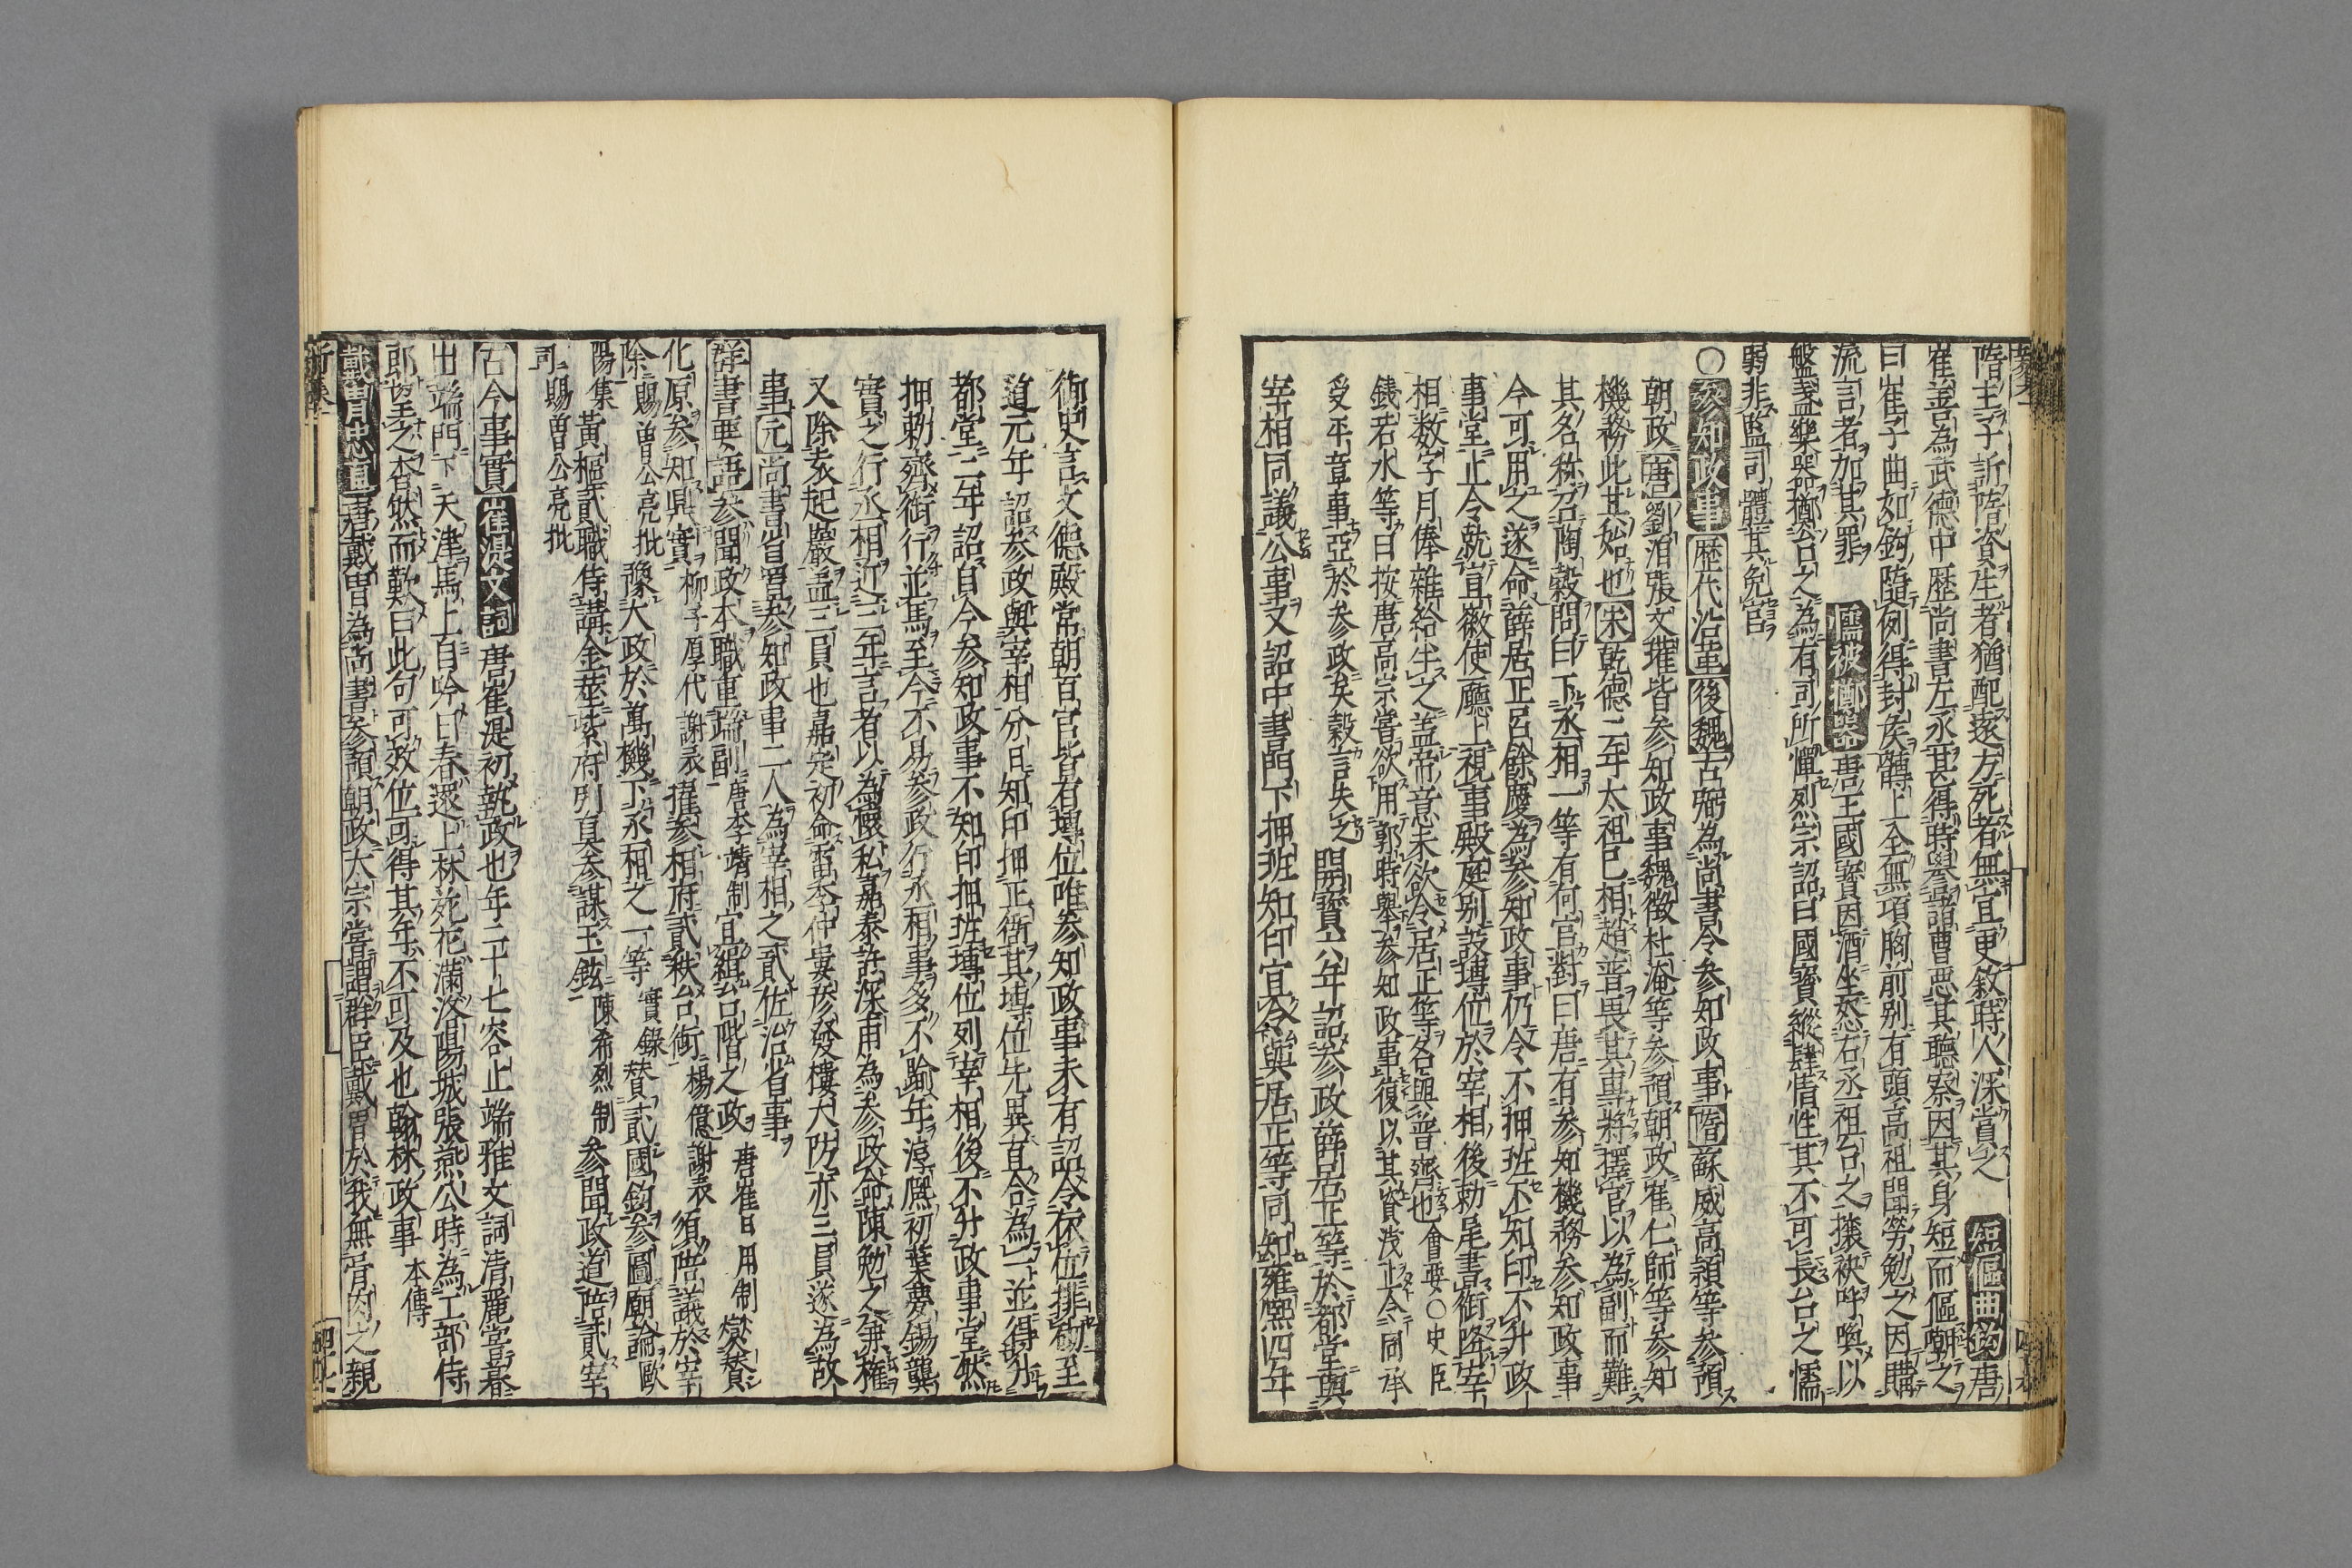 隋主子訢隋資生者猶配遂方死者無宜更敘時人深賞之 短傴曲鈎 唐
崔善為武德中歷尚書左丞甚得時譽諸曹惡其聰察因其身短而傴嘲之
曰崔子曲如鈎隨例得封侯髆上全無項胸前別有頭高祖聞勞勉之因購
流言者加其罪 懦被擲器 唐王國寶因酒坐怒右丞祖台之攘袂呼喚以
盤盞樂器擲台之為有司所憚烈宗詔曰國寶縱肆情性其不可長台之懦
弱非監司體其免官
〇參知政事 歷代沿革 後魏古弼為尚書令參知政事 隋蘇威高熲等參預
朝政 唐劉洎張文瓘皆參知政事魏徵杜淹等參預朝政崔仁師等參知
機務此其始也 宋乾德二年太祖已相趙普畏其專將擇官以為副而難
其名稱召陶穀問曰下丞相一等有何官對曰唐有參知機務參知政事
今可用之遂命薛居正呂餘慶為參知政事仍令不押班不知印不升政
事堂止令就宣徽使廳上視事殿庭別設塼位於宰相後勅尾書銜降宰
相數字月俸雜給半之盖帝意未欲令居正等名與普齊也 會要〇史臣
錢若水等曰按唐高宗嘗欲用郭時舉參知政事復以其資淺止令同承
受平章事亞於參政矣穀言失之 開寶六年詔參政薛居正等於都堂與
宰相同議公事又詔中書門下押班知印宜令與居正等同知雍熙四年
御史言文德殿常朝百官皆有塼位唯參知政事未有詔令依位排物至
道元年詔參政與宰相分日知印押正衙其塼位先異宜合為一並得升
都堂二年詔自今參知政事不知印押班塼位列宰相後不升政事堂然
押勅齊銜行並馬至今不易參政行丞相事多不踰年淳熙初葉夢錫龔
實之行丞相近三年言者以為懷私嘉泰許深甫為參政命陳勉之兼權
又除袁起巖盖三員也嘉定初命雷季仲婁彥發樓大防亦三員遂為故
事 元尚書省置參知政事二人為宰相之貳佐治省事
群書要語 參聞政本職重端副 唐李靖制 宜緝台階之政 唐崔日用制 爕賛
化原參知鼎實 柳子厚代謝表 擢參相府貳秩台衡 楊億謝表 須陪議於宰
除 賜曾公亮批 豫大政於萬機下丞相之一等 實錄 替貳國鈞參圖廟論 歐
陽集 黃樞貳職侍講金華紫府列眞參謀玉鉉 陳希烈制 參聞政道陪貳宰
司 賜曾公亮批
古今事實 崔湜文詞 唐崔湜初執政也年二十七容止端雅文詞清麗嘗暮
出端門下天津馬上自吟曰春還上林苑花滿洛陽城張燕公時為工部侍
郎望之杳然而歎曰此句可效位可得其年不可及也翰林政事 本傳
戴冑忠直 唐戴冑為尚書參預朝政太宗嘗謂群臣戴冑於我無骨肉之親